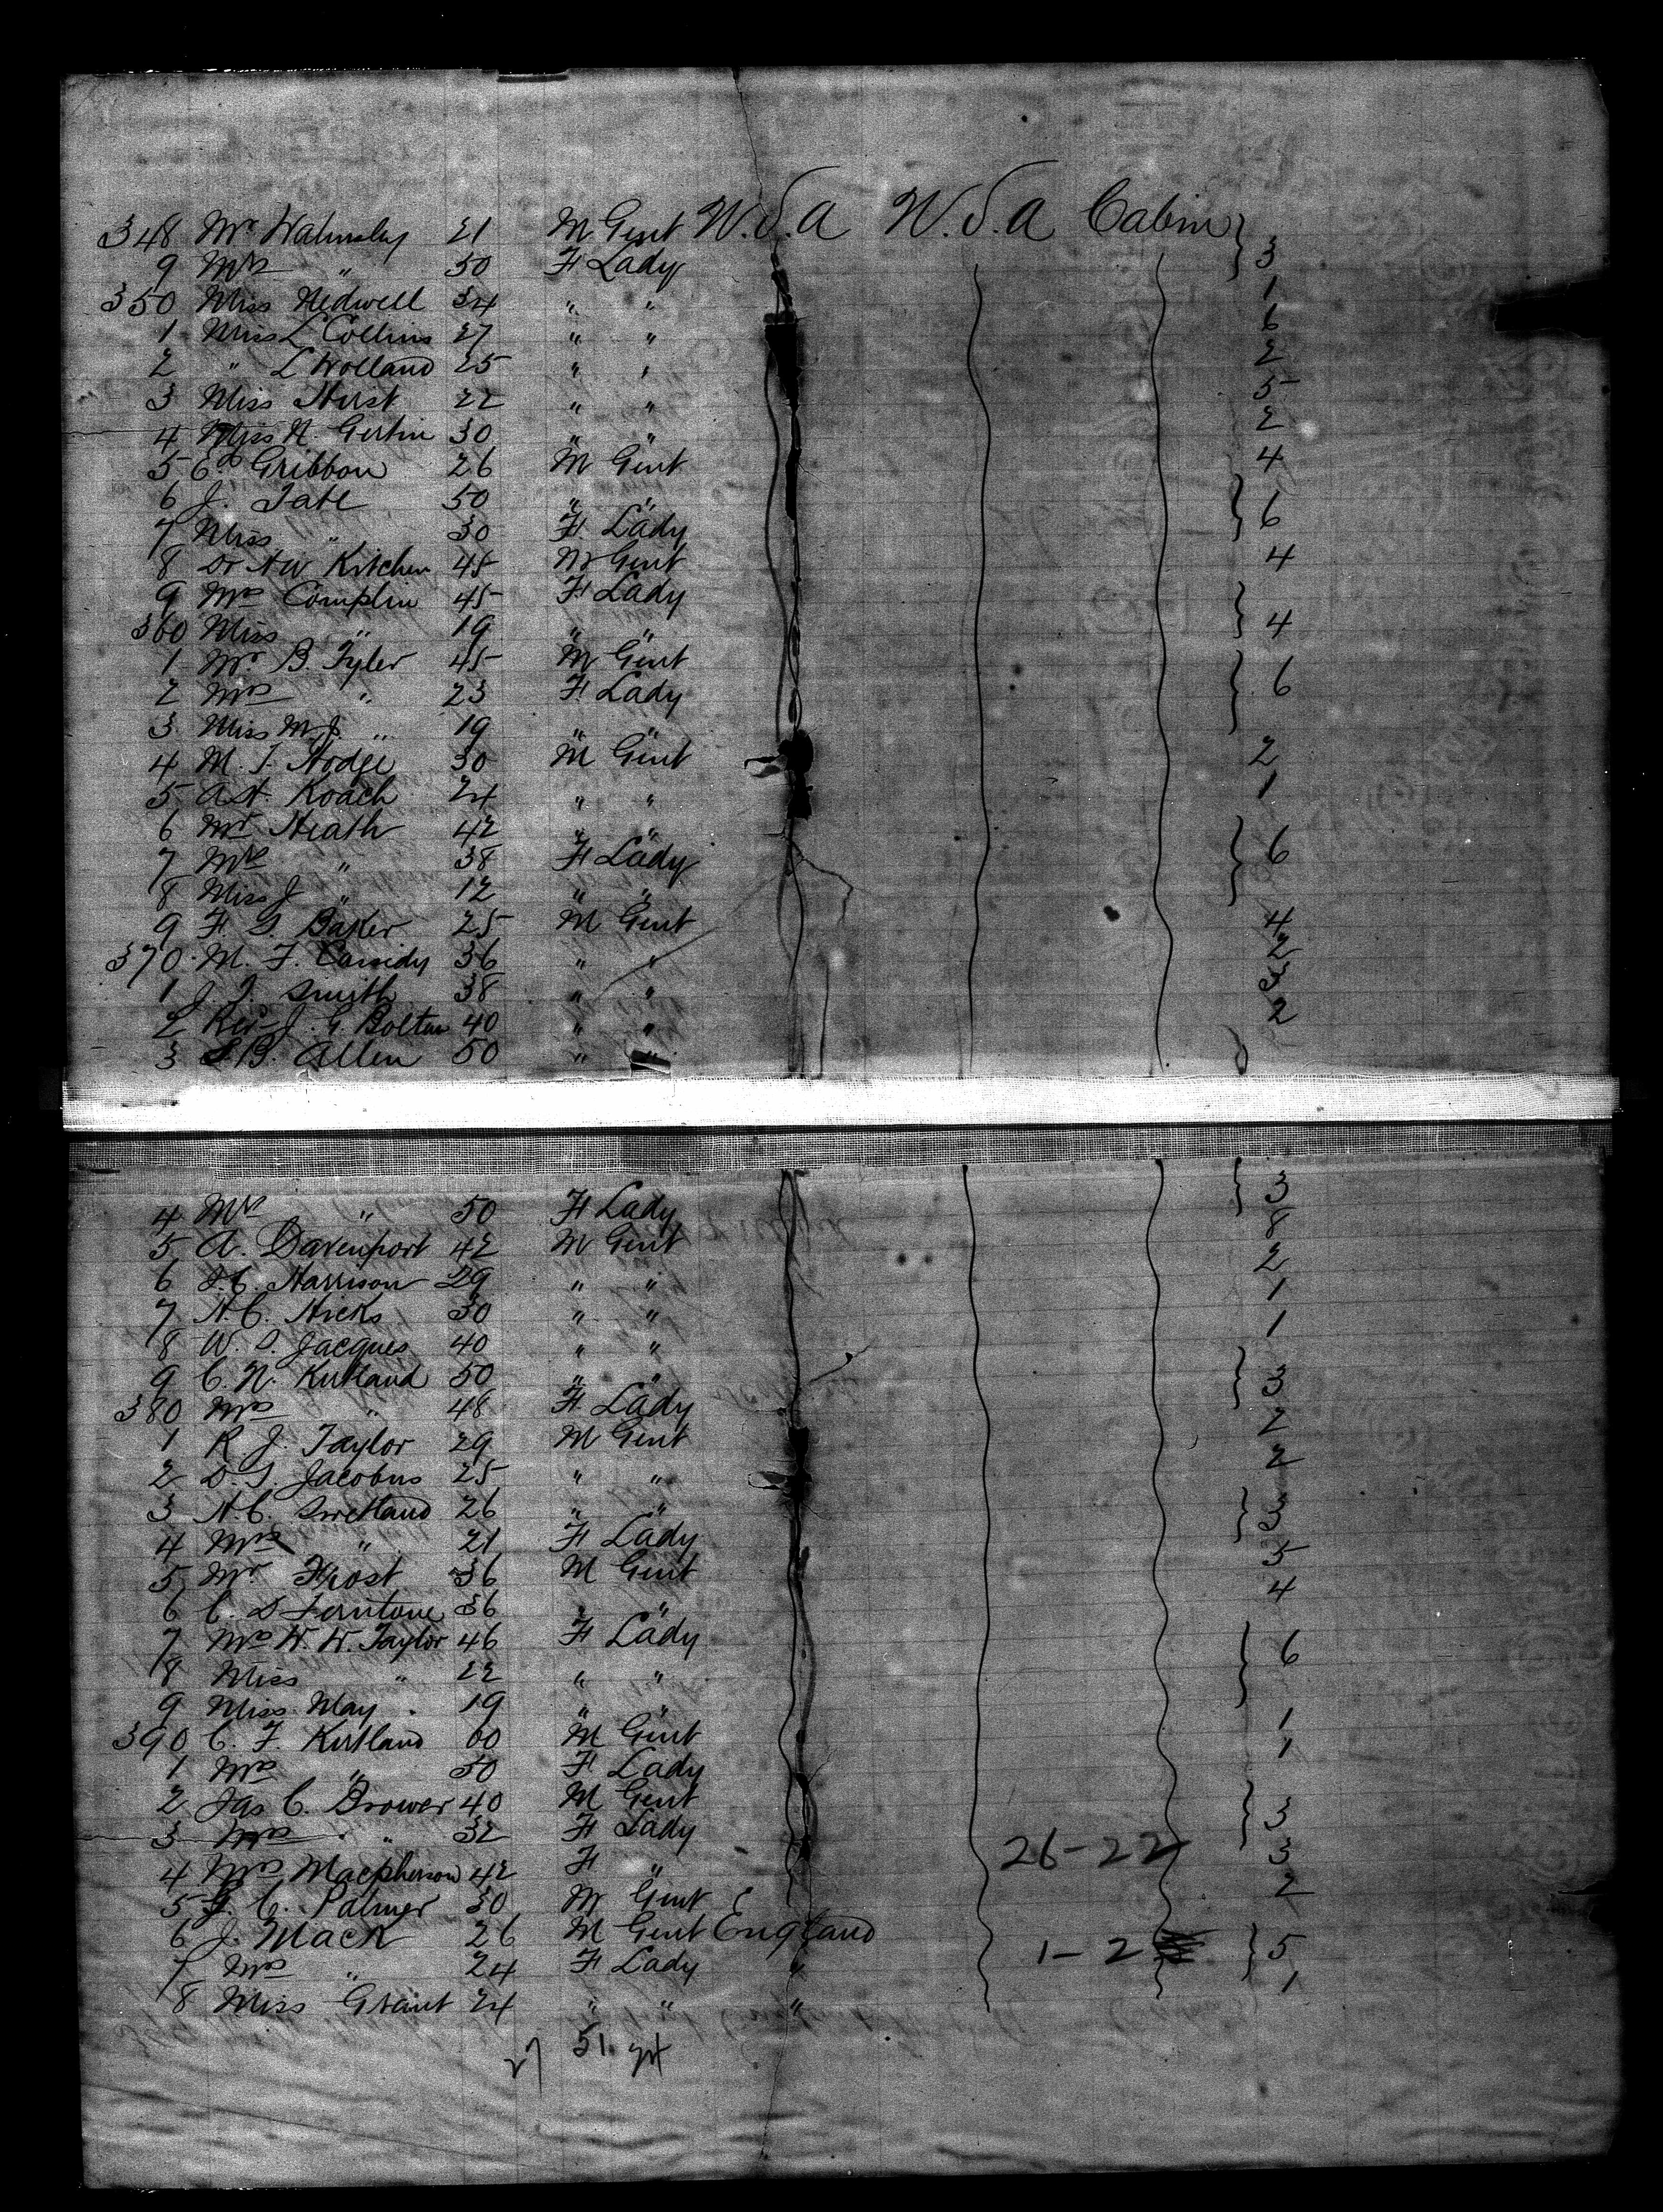 348 Mr Walmsley 21 M Gent U.S.A U.S.A Cabin } 3
9 Mrs " 50 F Lady
350 Miss Nedwell 34 " " 1
1 Miss L Collins 27 " " 6
2 " L Wolland 25 " " 2
3 Miss Hurst 22 " " 5
4 Miss N. Gertin 30 " " 2
5 Ed Gribbon 26 M Gent 4
6 J. Tate 50 " " } 6
7 Miss " 30 F Lady
8 Dr A W Kitchen 45 M Gent 4
9 Mrs Complin 45 F Lady } 4
360 Miss " 19 " "
1 Mr. B. Tyler 45 M Gent } 6
2 Mrs " 23 F Lady
3 Miss M. J. " 19 " "
4 M. T. Hodge 30 M Gent 2
5 A H. Koach 24 " " 1
6 Mr Heath 42 " " } 6
7 Mrs " 38 F Lady
8 Miss J " 12 " "
9 F. S. Baker 25 M Gent 4
370 M. F. Cassidy 36 " " 2
1 J. J. Smith 38 " " 3
2 Rev J. G. Bolton 40 " " 2
3 S B. Allen 50 " "
4 Mrs " 50 F Lady } 3
5 A. Davenport 42 M Gent 8
6 F. C. Harrison 29 " " 2
7 H. C. Hicks 30 " " 1
8 W. S. Jacques 40 " " 1
9 C. N. Kirtland 50 " " } 3
380 Mrs " 48 F Lady
1 R J. Taylor 29 M Gent 2
2 D. S. Jacobus 25 " " 2
3 H. C. Swetland 26 " " } 3
4 Mrs " 21 F Lady
5 Mr Frost 36 M Gent 5
6 C. D 36 " " 4
7 Mrs W. W. Taylor 46 F Lady } 6
8 Miss " 22 " "
9 Miss May " 19 " "
390 C. F. Kirtland 60 M Gent 1
1 Mrs " 50 F Lady 1
2 Jas C. Brower 40 M Gent } 3
3 Mrs " 32 F Lady
4 Mrs Macpherson 42 F " 26-22 3
5 J. C. Palmer 30 M Gent 2
6 J. Mack 26 M Gent England 1-2 } 5
7 Mrs " 24 F Lady "
8 Miss Grant 24 " " " 1
51